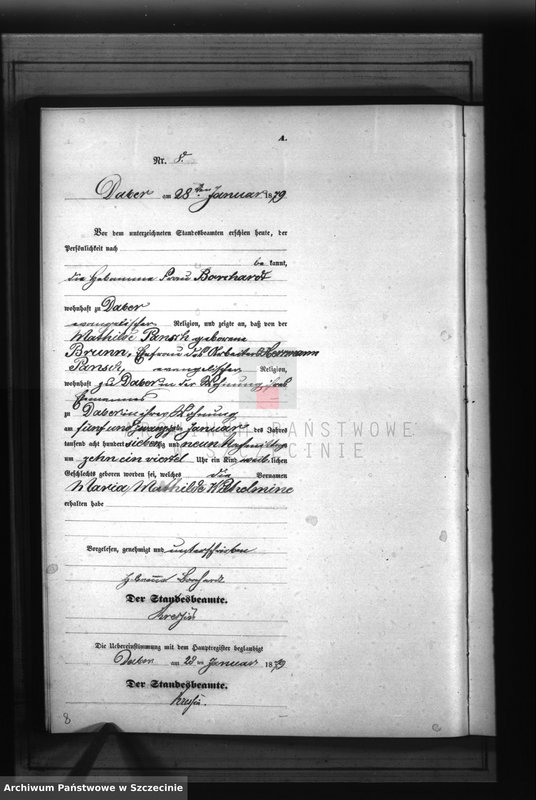 A.
Nr. 8.
Daber am 28ten Januar 1879
Vor dem unterzeichneten Standesbeamten erschien heute, der
Persönlichkeit nach
be kannt,
die Hebamme Frau Borchardt
wohnhaft zu Daber
evangelischer Religion, und zeigte an, daß von der
Mathilde Pansch geborene
Brunn, Ehefrau des Arbeiters Herrmann
Pansch, evangelischer Religion,
wohnhaft zu Daber in der Wohnung ihres
Ehemannes
zu Daber in ihrer Wohnung
am fünf und zwanzigsten Januar des Jahres
tausend acht hundert siebenzig und neun Vormittags
um zehn ein viertel Uhr ein Kind weib lichen
Geschlechts geboren worden sei, welches die Vornamen
Maria, Mathilde Wilhelmine
erhalten habe
Vorgelesen, genehmigt und unterschrieben
Hebamme Borchardt
Der Standesbeamte.
Die Uebereinstimmung mit dem Hauptregister beglaubigt
Daber am 28ten Januar 1879
Der Standesbeamte.
8
PAŃSTWOWE
SZCZECINIE
Archiwum Państwowe w Szczecinie